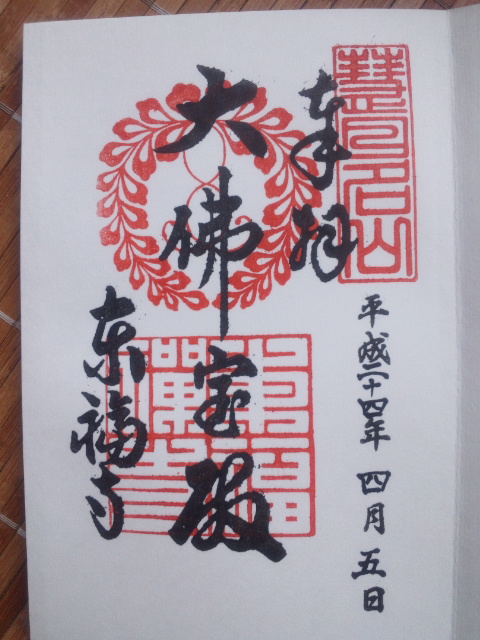 慧日名山
奉拝
平成二十四年 四月 五日
大佛宝殿
東福寺
東福禅寺